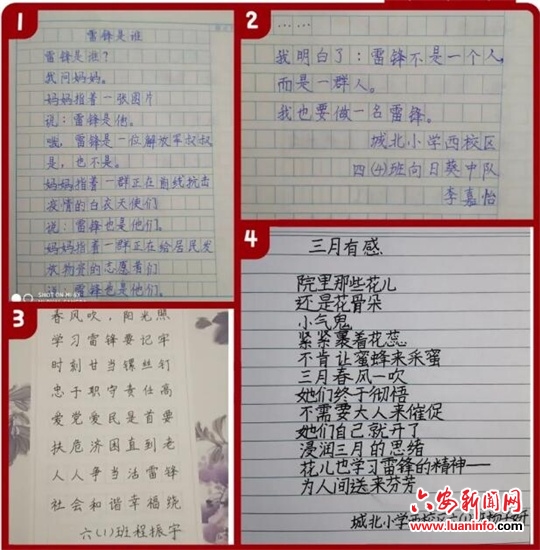 1
雷锋是谁
雷锋是谁?
我问妈妈。
妈妈指着一张图片
说:雷锋是他。
哦,雷锋是一位解放军叔叔
是,也不是。
妈妈指着一群正在前线抗击
疫情的白衣天使们
说:雷锋也是他们。
妈妈指着一群正在给居民发
放物资的志愿者们
说:雷锋也是他们。
2
……
我明白了:雷锋不是一个人,
而是一群人。
我也要做一名雷锋。
城北小学西校区
四(4)班向日葵中队
李嘉怡
3
春风吹,阳光照
学习雷锋要记牢
时刻甘当镙丝钉
忠于职守责任高
爱党爱民是首要
扶危济困直到老
人人争当活雷锋
社会和谐幸福绕
六(1)班程振宇
4
三月有感
院里那些花儿
还是花骨朵
小气鬼
紧紧裹着花蕊
不肯让蜜蜂来采蜜
三月春风一吹
她们终于彻悟
不需要大人来催促
她们自己就开了
浸润三月的思绪
花儿也学习雷锋的精神——
为人间送来芬芳
城北小学西校区
六安新闻网
luaninfo.com